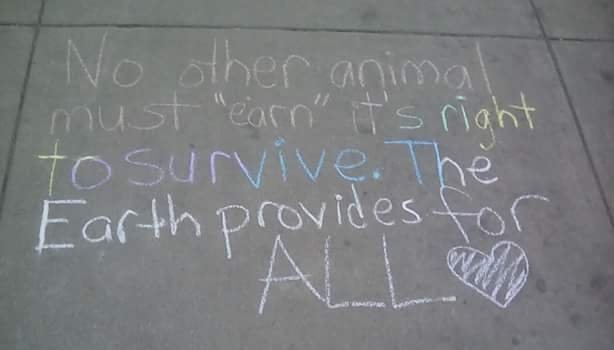 No other animal
must "earn" it's right
to survive. The
Earth provides for
ALL